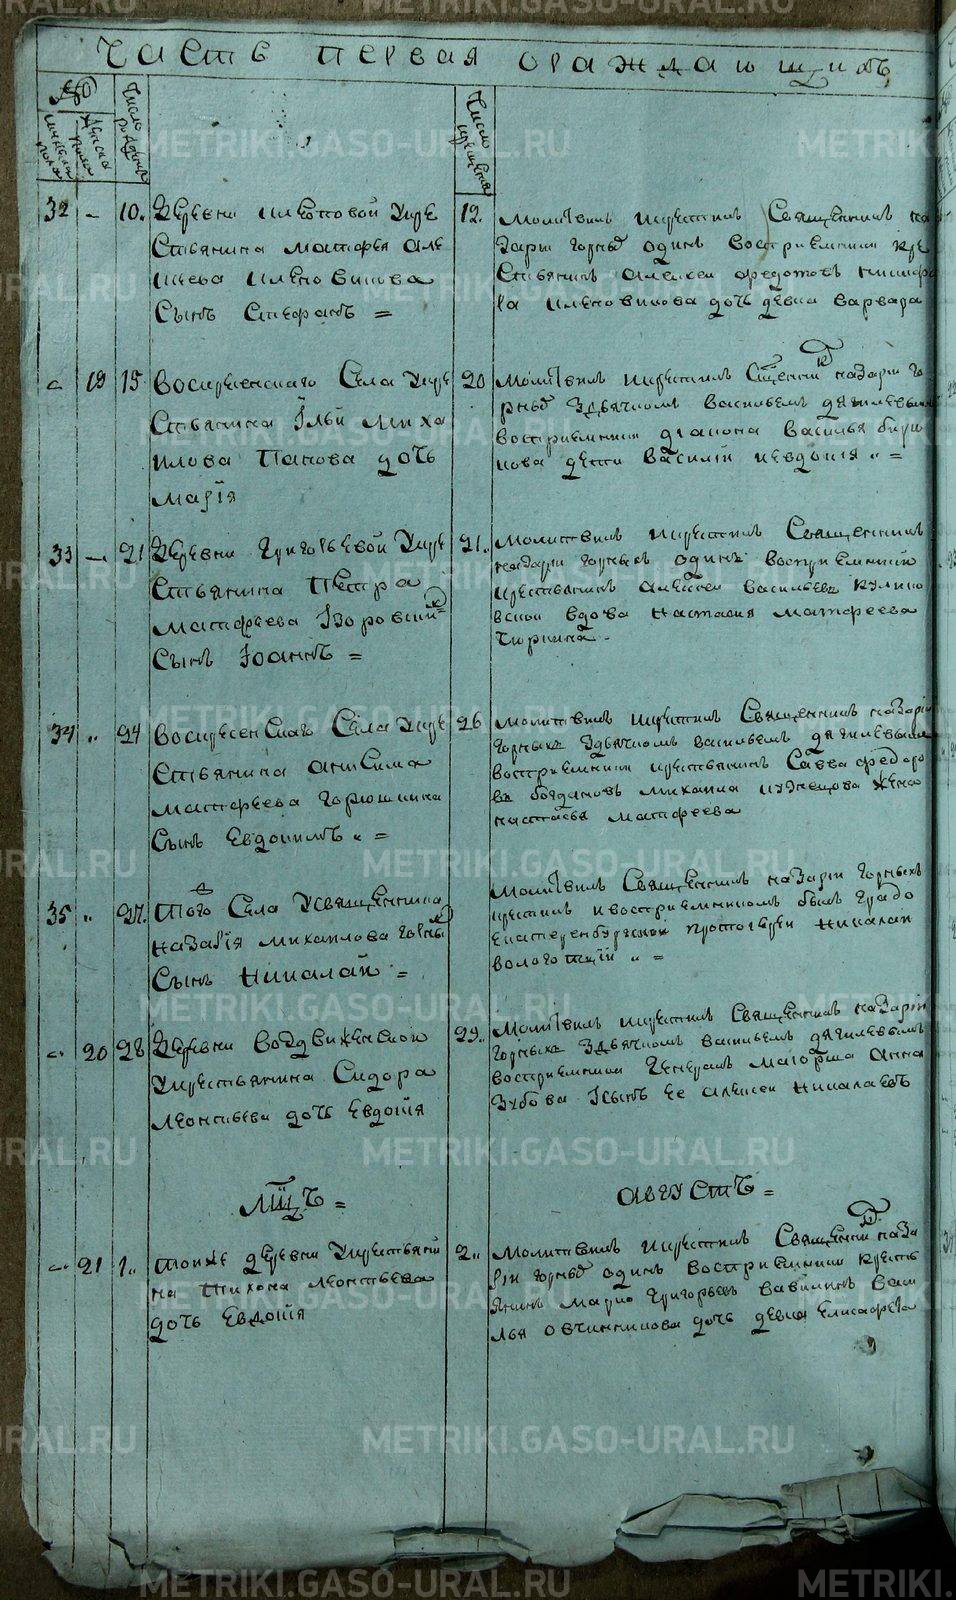 Часть первая ораждающихъ
№
мужеска пола
женска пола
число рождения
число крещения
32 - 10. Деревни Клеповой кре
стьянина Матфея Але
ѯева
сынъ Стефанъ =
12. Молитвилъ и крестилъ Священникъ На
зарiй Горныхъ одинъ восприемники кре
стьянинъ Алексей Федотовъ
дочь девка Варвара
19 15 Воскресенскаго Села кре
стьянина Iльи Миха
илова Панова дочь
Марiя
20 Молитвилъ и крестилъ Сщенникъ Назарiй Го
рныхъ здьячкомъ Васильемъ Дягилевымъ
восприемники дiакона Василья
дети Василiй и Евдокiя „ =
33 - 21 Деревни Григорьевой кре
стьянина Петра
Матфеева Боровский
Сынъ Iоаннъ =
21.. Молитвилъ и крестилъ Священникъ
Назарiй Горныхъ одинъ восприемники
крестьянинъ Алексей Васильевъ Кулико
вской вдова Настасия Матфеева
34 „ 24 Воскресенскаго Села кре
стьянина Анисима
Матфеева Горюшкина
Сынъ Евдокимъ „ =
26 Молитвилъ и крестилъ Священникъ Назарiй
Горныхъ здьячкомъ Васильемъ Дягилевымъ
восприемники крестьянинъ Савва Федоро
въ Богдановъ Михаила Кузнецова жена
Настасья Матфеева
35 „ 27. Того Села у священника
Назарiя Михайлова Горныхъ
Сынъ Николай =
Молитвилъ Священникъ Назарiй Горныхъ
крестилъ и восприемникомъ былъ Градо
Екатеренбургской Протоиерей Николай
Вологотцкiй „ =
20 28 Деревни Воздвиженской
крестьянина Сидора
Леонтьева дочь Евдокiя
29.. Молитвилъ и крестилъ Священникъ Назарiй
Горныхъ здьячкомъ Васильемъ Дягилевымъ
восприемники Генералъ Маiорша Анна
Зубова Iсынъ ее Алексей Николаевъ
Мцъ =
Августъ =
21 1.. Тойже деревни крестьяни
на Тихона Леонтьева
дочь Евдокiя
2.. Молитвилъ и крестилъ Священникъ Наза
рiй Горныхъ одинъ восприемники кресть
янинъ Марко Григорьевъ Вавилинъ Васи
лья Овчинникова дочь девка Елисафета
METRIKI.GASO-URAL.RU